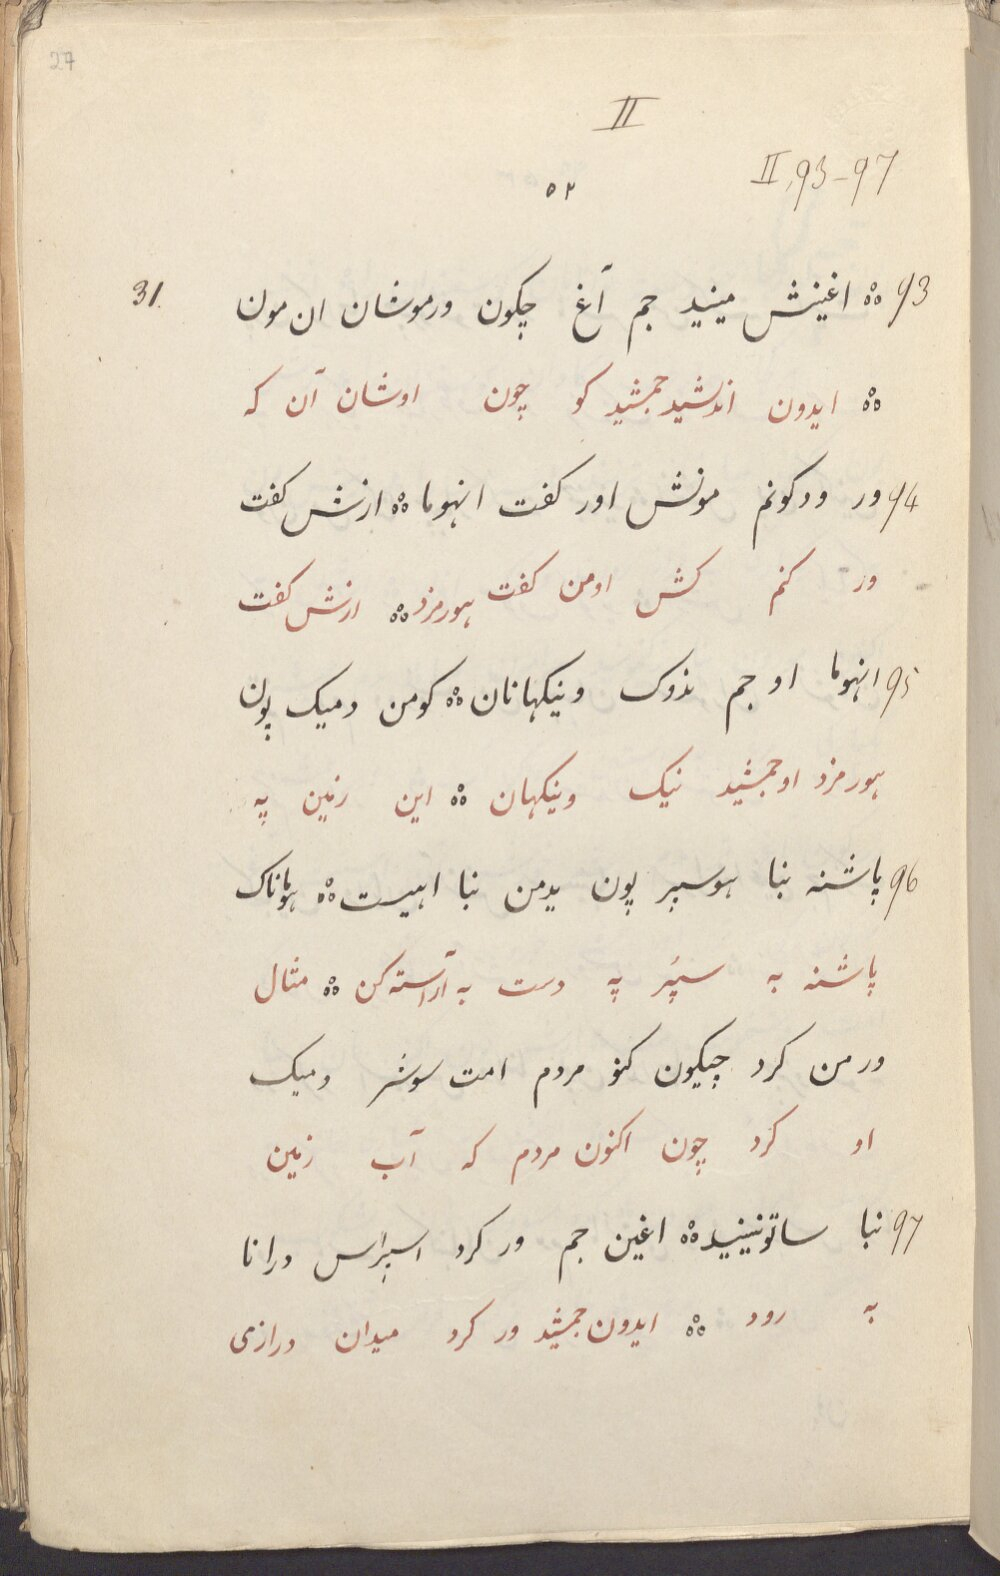 27
II
II, 93-97
۵۲
93 ؞ اغینش مینید جم آغ چکون ورموشان ان مون 31
؞ ایدون اندیشید جمشید کو چون اوشان آن که
94 ور ودکونم مونش اور کفت انهوما ؞ ازش کفت
ور کنم کش اومن کفت هورمزد ؞ ازش کفت
95 انهوما او جم نذوک وینکهانان ؞ کومن دمیک پون
هورمزد او جمشید نیک وینکهان ؞ این زمین په
96 پاشنه بنا هوسپر پون یدمن بنا اهیست ؞ هوماناک
پاشنه به سپُر په دست به آراسته کن ؞ مثال
ور من کرد چیکون کنو مردم امت سوشر دمیک
او کرد چون اکنون مردم که آب زمین
97 بنا ساتونینید ؞ اغین جم ور کرد اسپراس درانا
به رود ؞ ایدون جمشید ور کرد میدان درازی